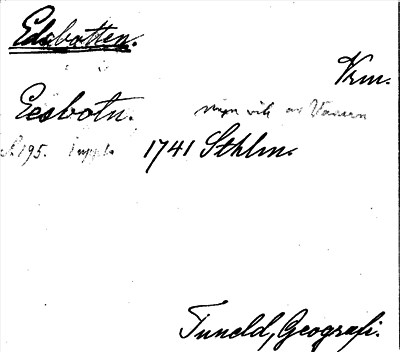 Edsbotten.
Vrm.
Eesbotn. vik av Vänern
S. 195. 1741 Sthlm.
Tuneld, Geografi.